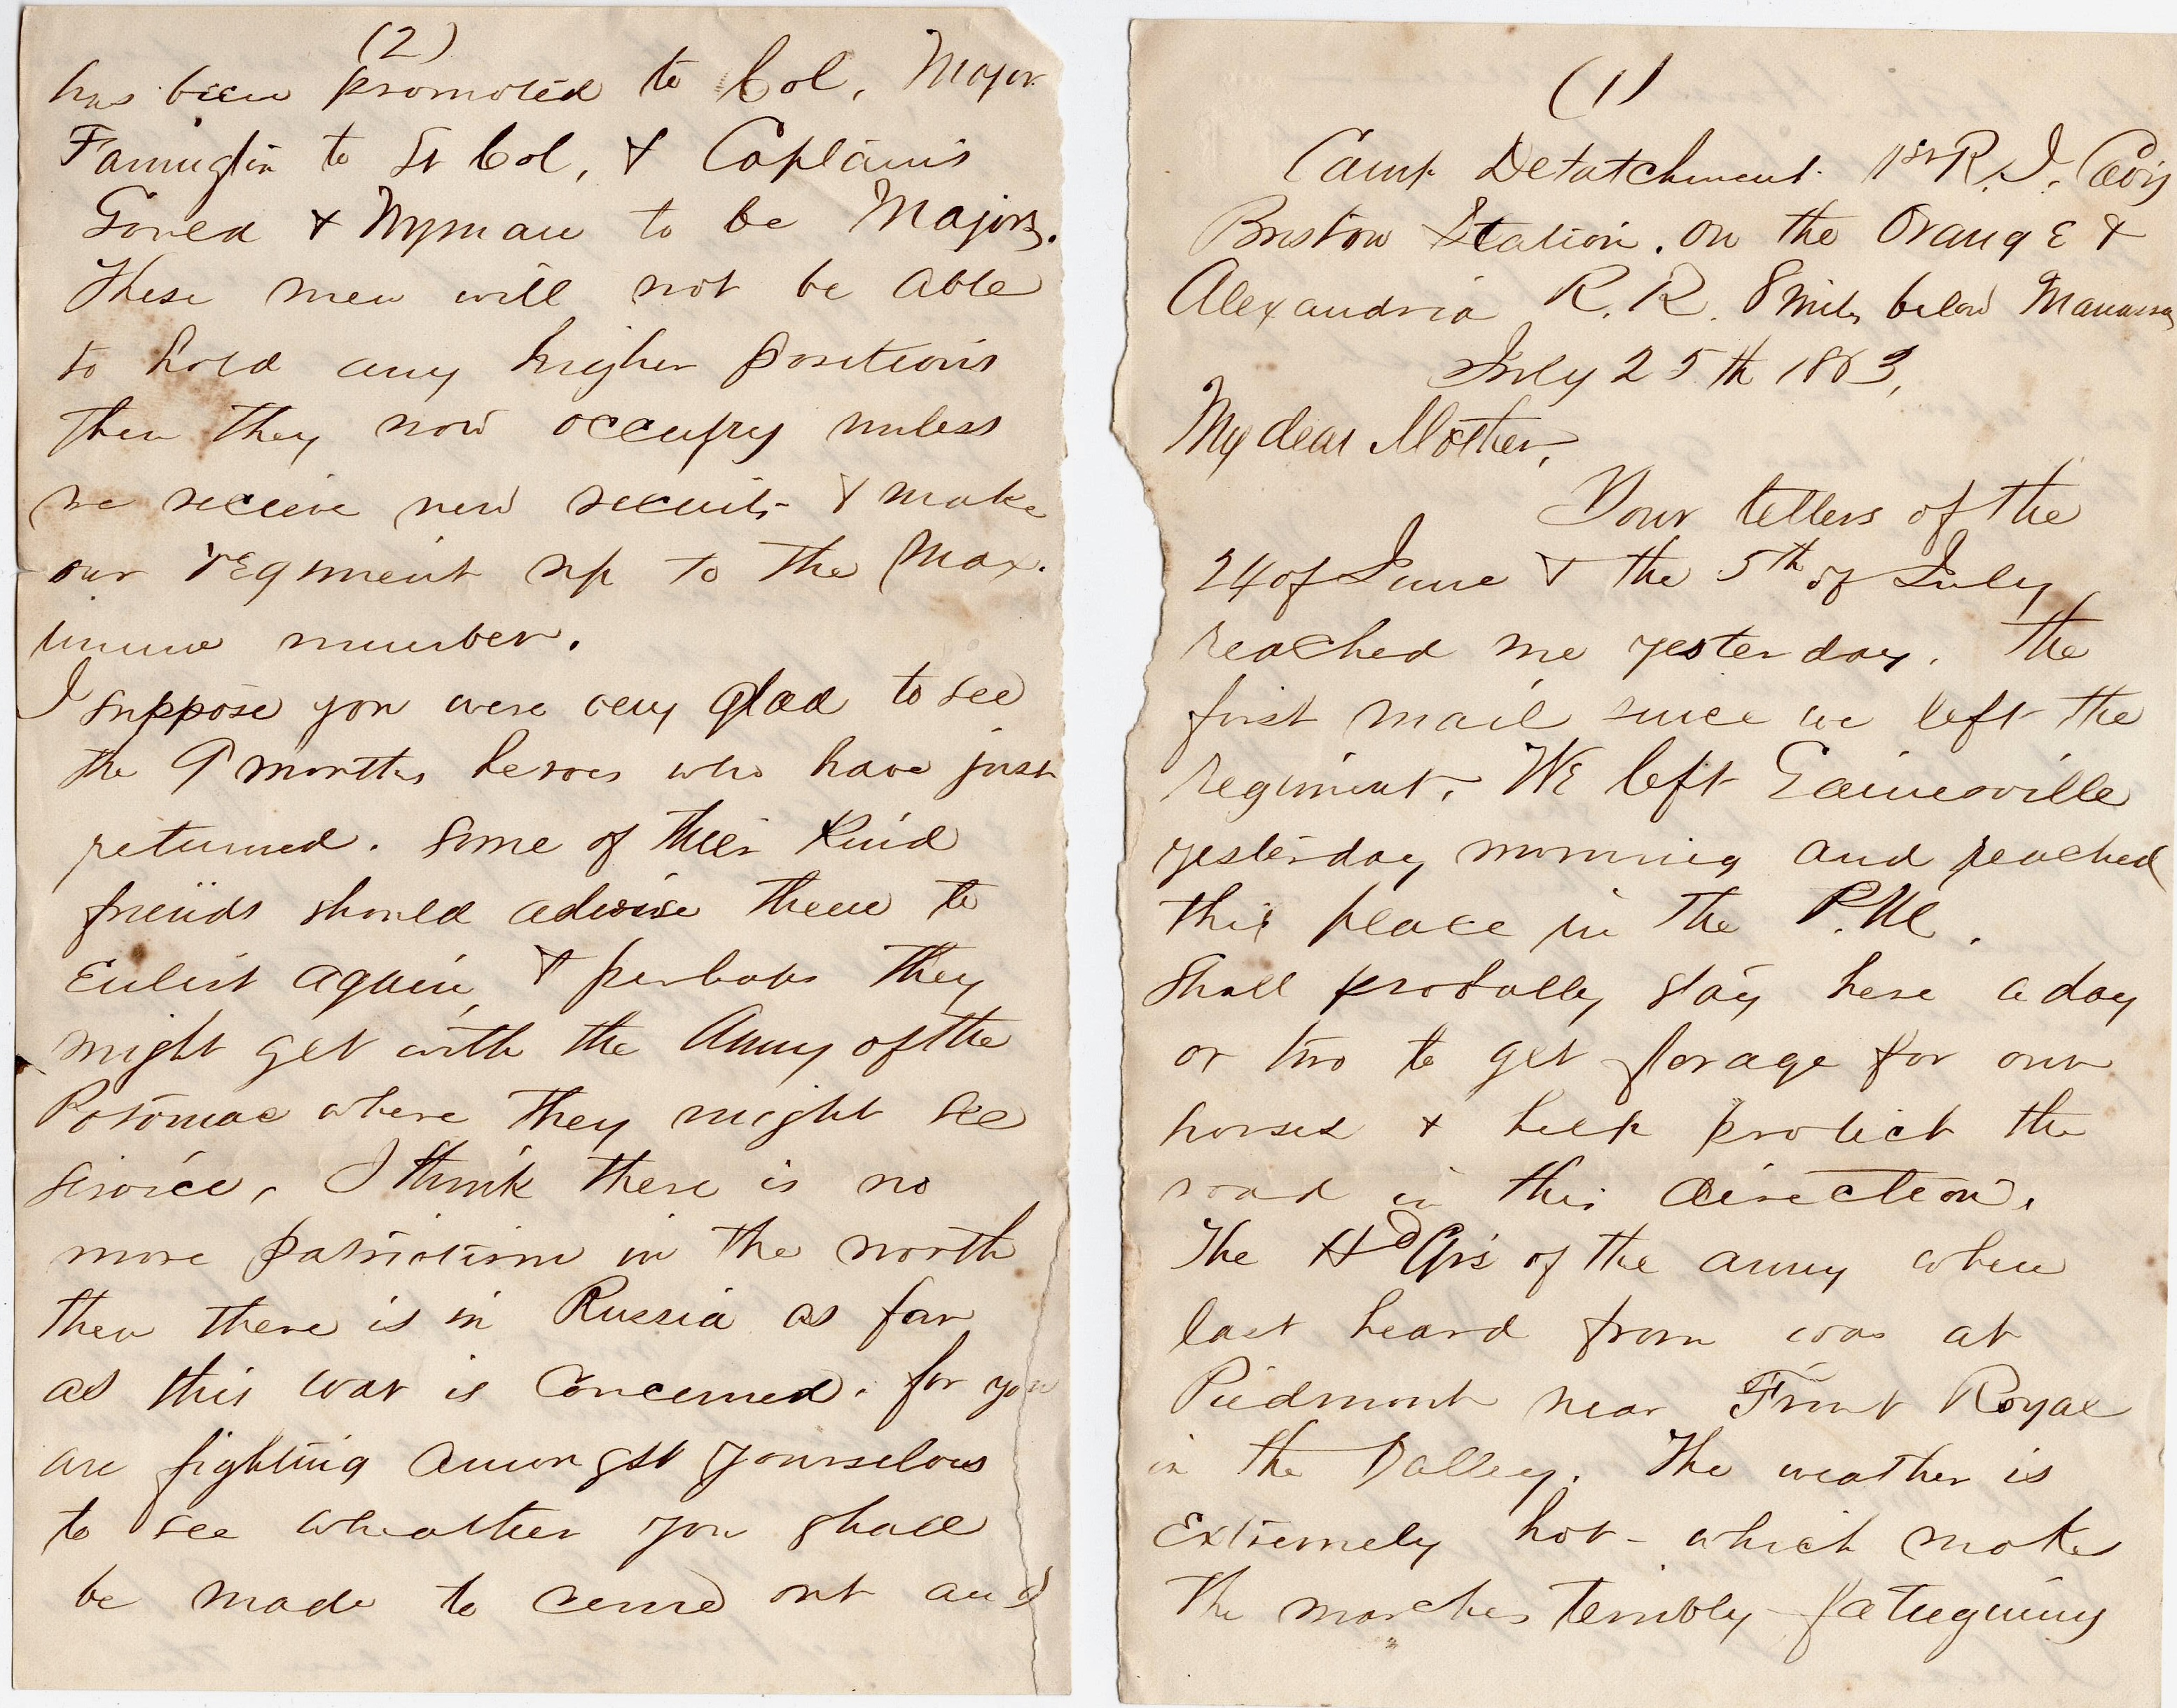 (1)
Camp Detatchment 1st R. I. Cavy
Bristow Station. On the Orange &
Alexandria R. R. 8 miles below Manassas
July 25th 1863,
My dear Mother,
Your letters of the
24 of June & the 5th of July
reached me yesterday. The
first mail since we left the
regiment. We left Gainesville
yesterday morning and reached
this place in the P.M.
Shall probally stay here a day
or two to get forage for our
horses & help protect the
road in this direction.
The Hd Qrs of the army when
last heard from was at
Piedmont near Front Royal
in the Valley. The weather is
Extremely hot - which make
the marches terribly fatieguing
(2)
has been promoted to Col, Major
to Lt Col, & Captains
Gould & Wyman to be Majors.
These men will not be able
to hold any higher positions
then they now occupy unless
we receive new recruits & make
our regiment up to the Max.
imum number.
I suppose you were very glad to see
the 9 months heroes who have just
returned. Some of their kind
friends should advise them to
Enlist again, & perhaps they
might get with the Army of the
Potomac where they might see
service, I think there is no
more patriotism in the north
then there is in Russia as far
as this war is concerned. for you
are fighting amongst yourselves
to see wheather you shall
be made to come out and